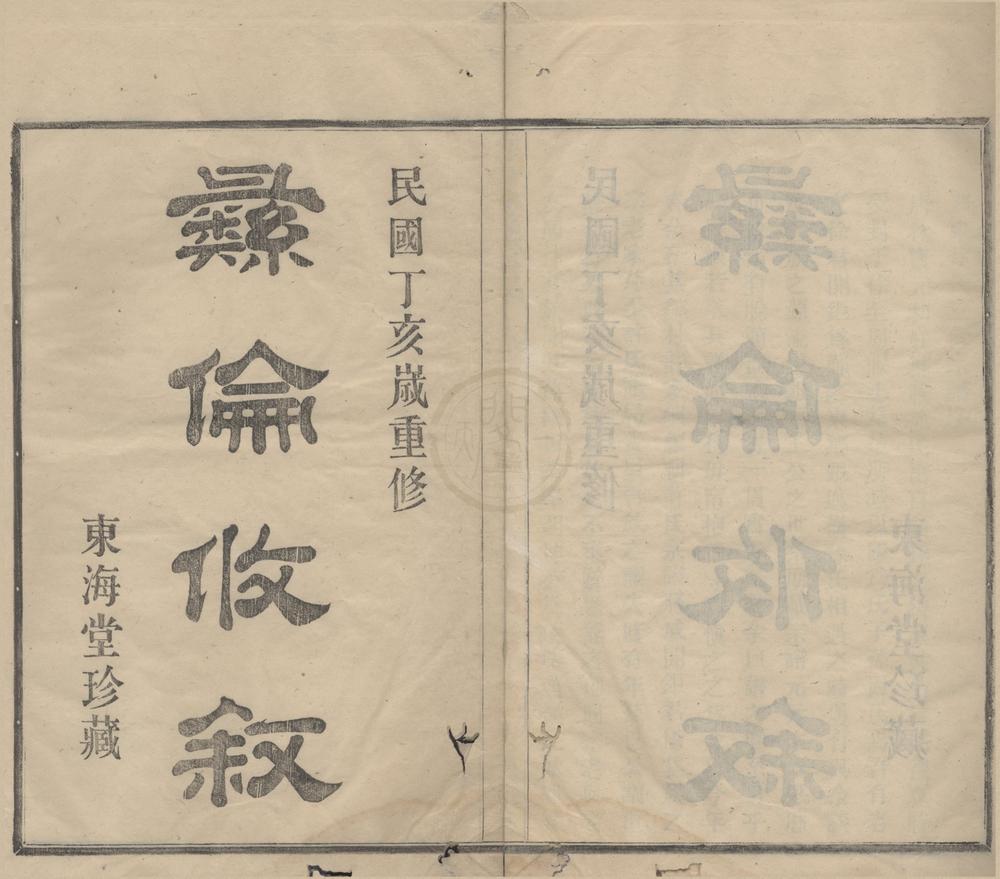 民國丁亥嵗重修
彝倫攸敘
東海堂珍藏